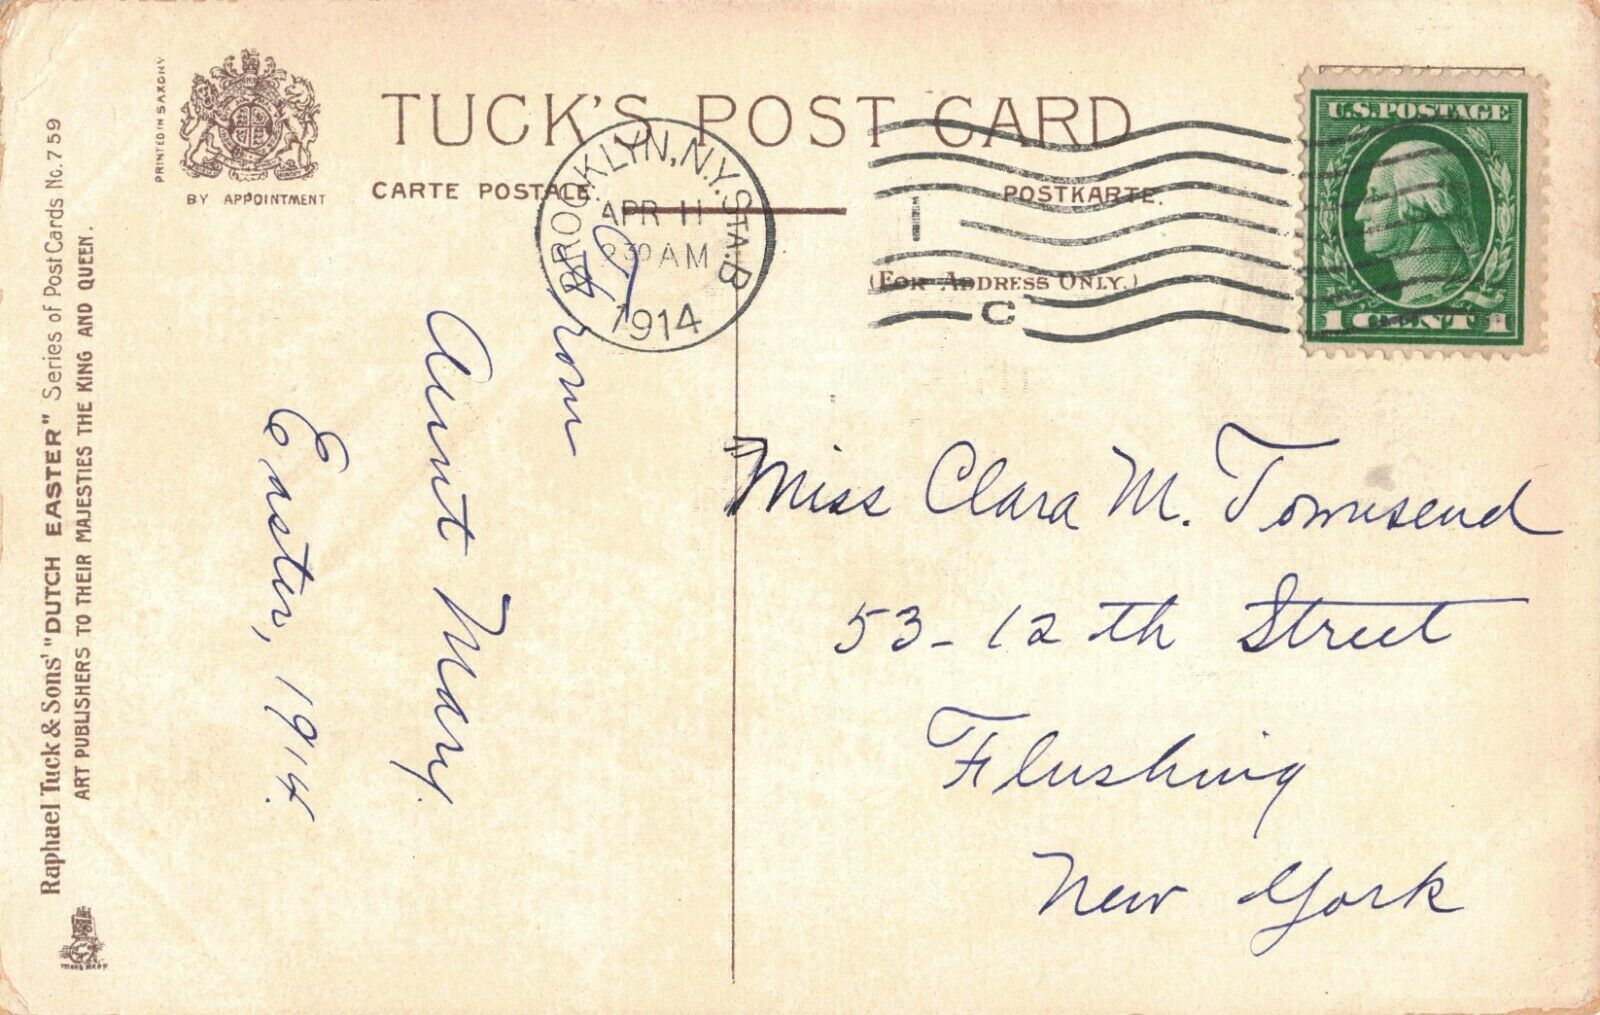 TUCK'S POST CARD
CARTE POSTALE.
POSTKARTE.
(FOR ADDRESS ONLY.)
PRINTED IN SAXONY
BY APPOINTMENT
Raphael Tuck & Sons' "DUTCH EASTER" Series of Post Cards No. 759
ART PUBLISHERS TO THEIR MAJESTIES THE KING AND QUEEN.
TRADE MARK
BROOKLYN, N.Y. STA. B
APR 11
30 AM
1914
1
C
U.S. POSTAGE
1 CENT 1
From
Aunt Mary.
Easter, 1914.
Miss Clara M. Townsend
53-12th Street
Flushing
New York